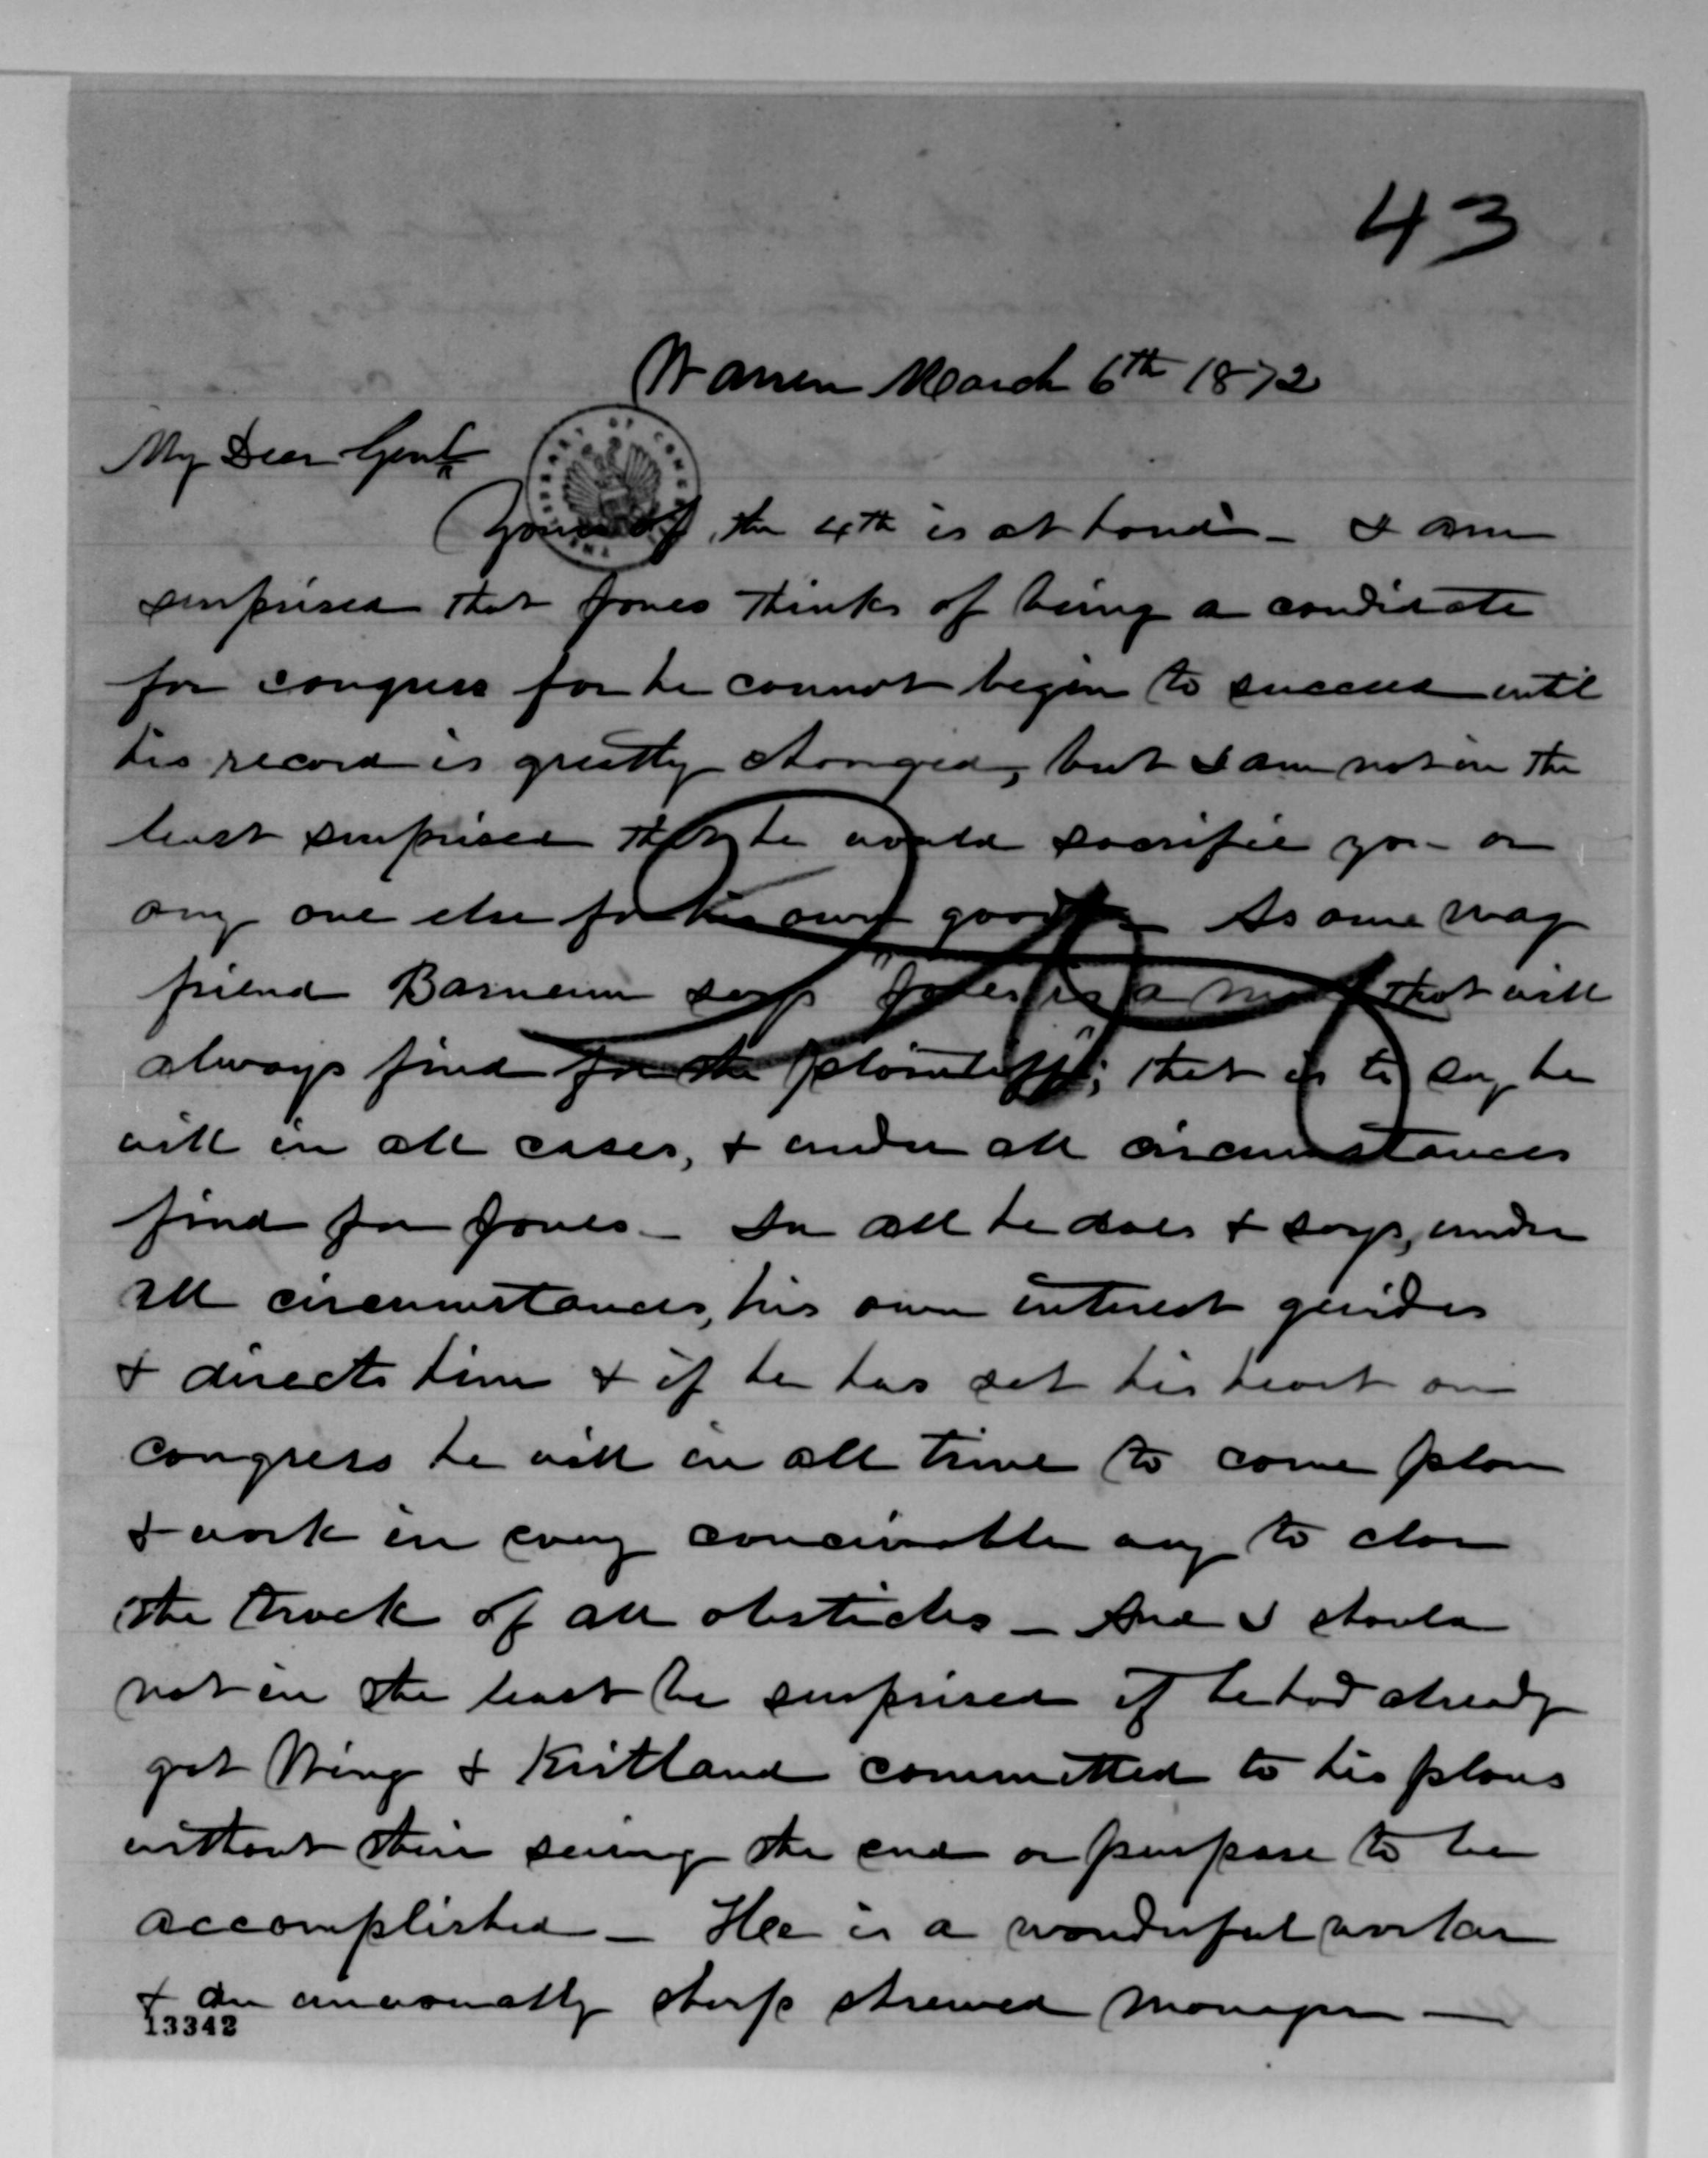 43
Warren March 6th 1872
My Dear Genl
Yours of the 4th is at hand - I am
surprised that Jones thinks of being a candidate
for congress for he cannot begin to succeed until
his record is greatly changed, but I am not in the
least surprised that he would sacrifice you or
any one else for his own good - As our wag
friend Barnum says "Jones is a man that will
always find for the plaintiff"; that is to say he
will in all cases, & under all circumstances
find for Jones - In all he does & says, under
all circumstances, his own interest guides
& directs him & if he has set his heart on
congress he will in all time to come plan
& work in every conceivable way to clear
the track of all obsticles - And I should
not in the least be surprised if he had already
got Wing & Kirtland committed to his plans
without their seeing the end or purpose to be
accomplished - He is a wonderful worker
& an unusually sharp shrewd manager -
13342
LIBRARY OF CONGRESS